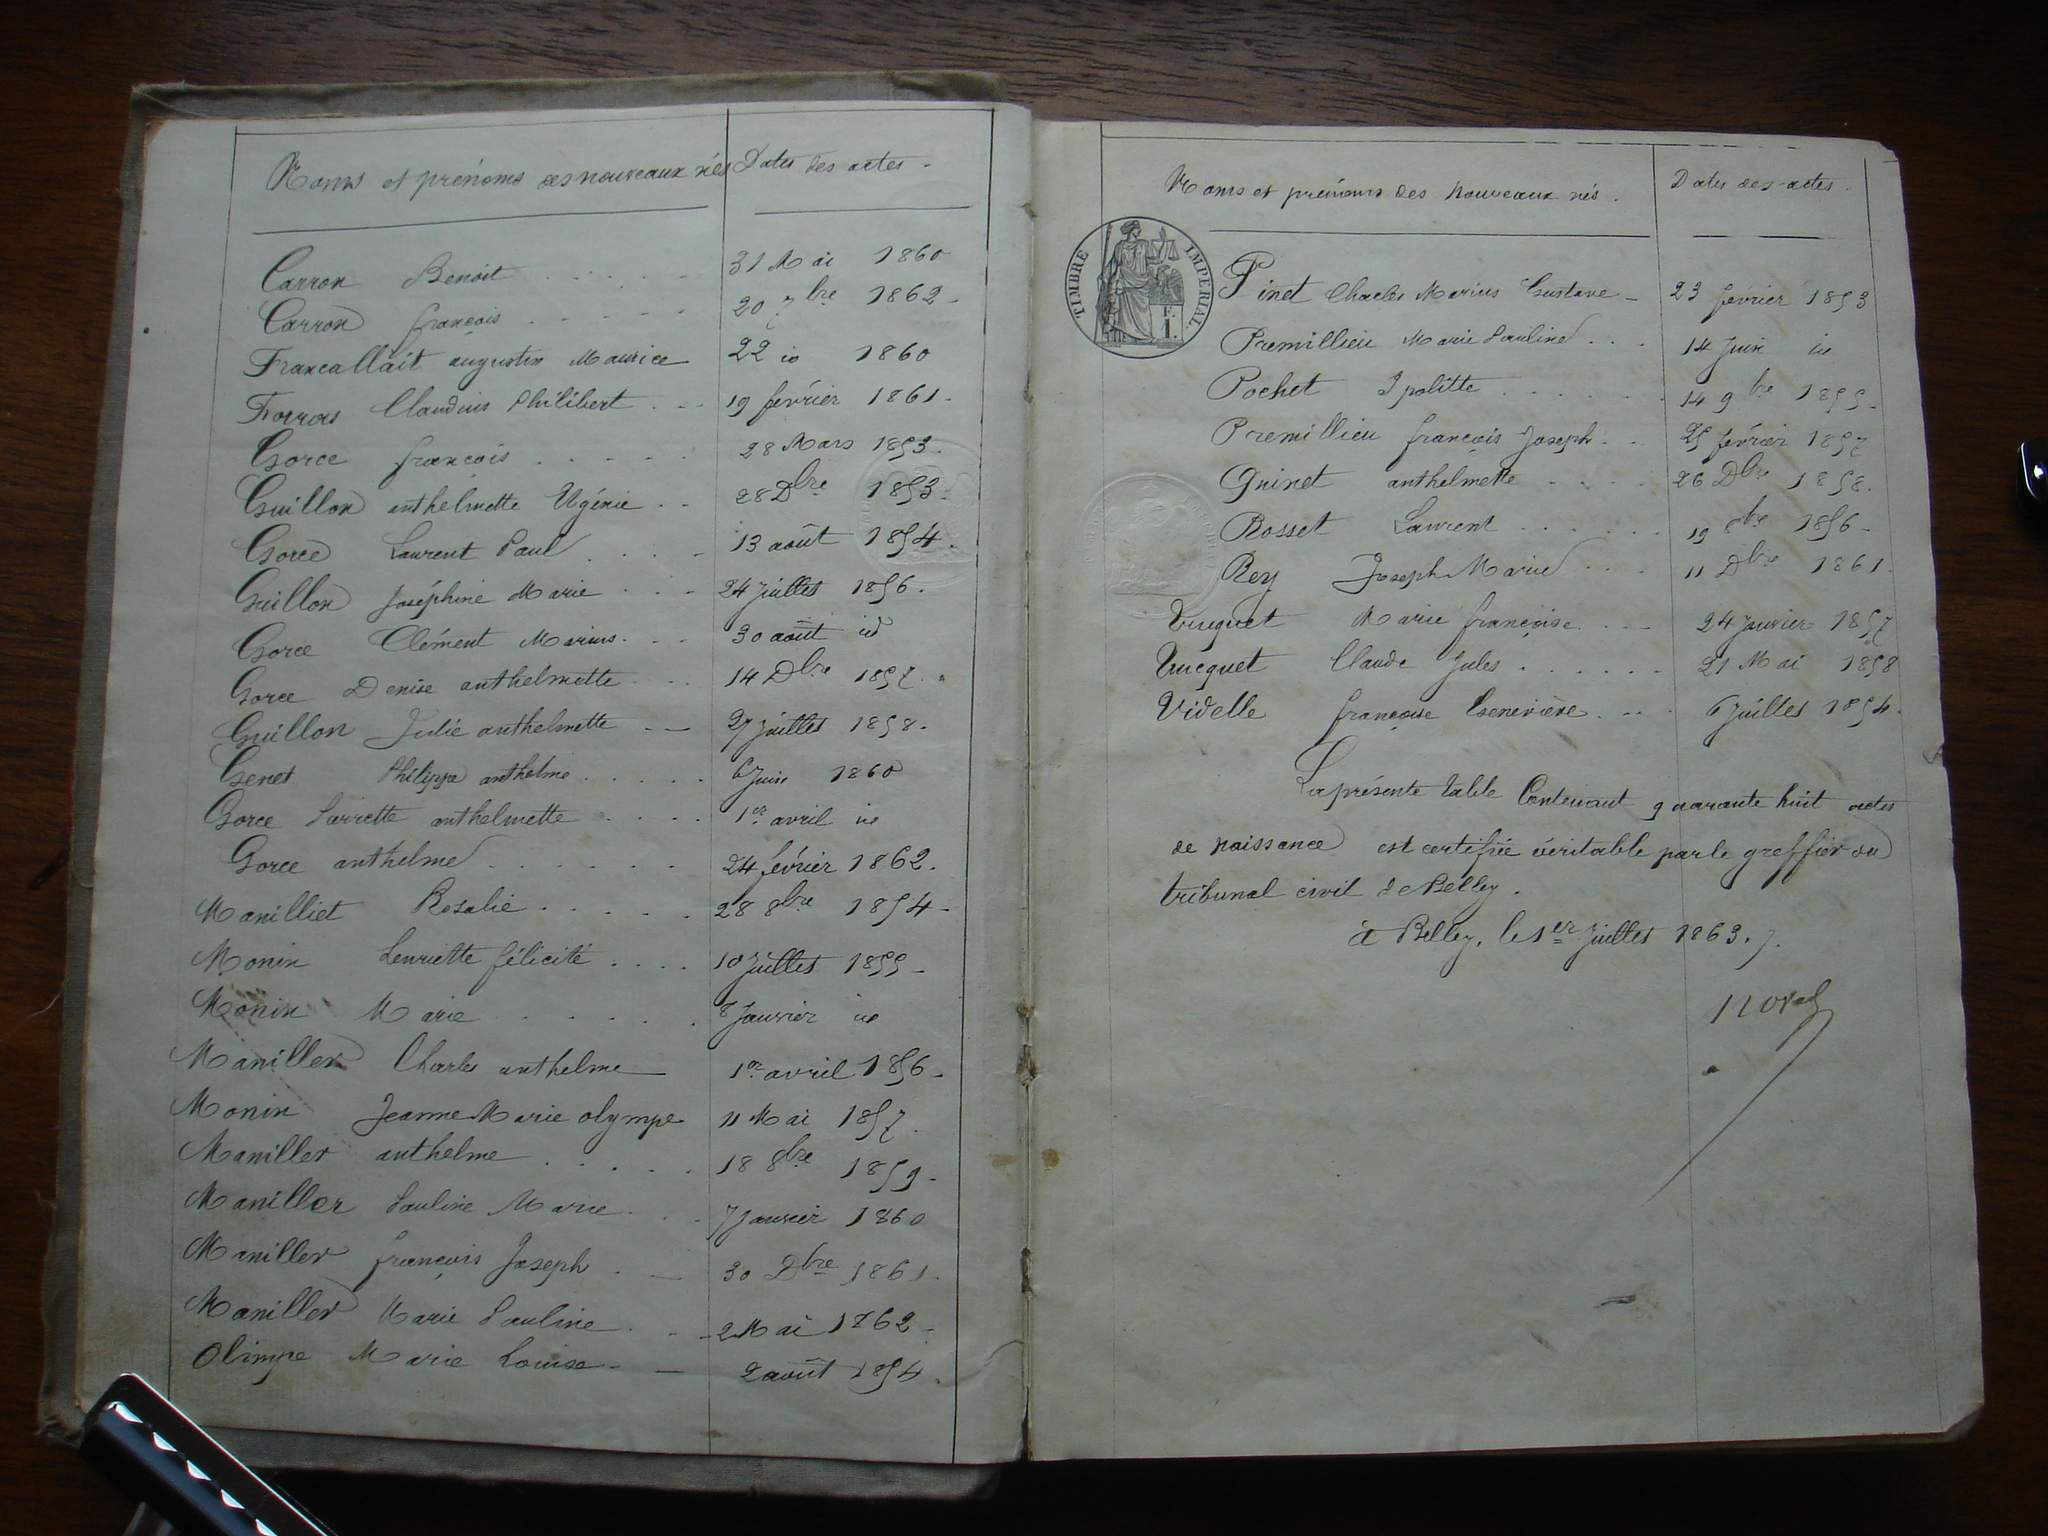 Noms et prénoms des nouveaux nés Dates des actes.
Carron Benoit 31 Mai 1860
Carron françois 20 7bre 1862
Francallait augustin Maurice 22 id 1860
Claudius Philibert 19 février 1861.
Gorce françois 28 Mars 1853.
Guillon anthelmette Ugénie 28 Dbre 1853.
Gorce Laurent Paul 13 août 1854.
Guillon Joséphine Marie 24 Juillet 1856.
Gorce Clément Marius. 30 août id
Gorce Denise anthelmette 14 Dbre 1857.
Guillon Julie anthelmette 27 Juillet 1858.
Genet Philippe anthelme 6 Juin 1860
Gorce anthelmette 1er avril id
Gorce anthelme 24 février 1862.
Manilliet Rosalie 28 8bre 1854
Monin henriette félicité 10 Juillet 1855
Monin Marie 8 Janvier id
Maniller Charles anthelme 1er avril 1856
Monin Jeanne Marie olympe 11 Mai 1857.
Maniller anthelme 18 8bre 1859.
Maniller Pauline Marie 7 Janvier 1860
Maniller françois Joseph 30 Dbre 1861.
Maniller Marie Pauline 2 Mai 1862
Olimpe Marie Louise 2 août 1854.
Noms et prénoms des nouveaux nés. Dates des actes.
TIMBRE IMPERIAL.
Pinet Charles Marius Gustave 23 février 1853
Premillieu Marie Pauline 14 Juin id
Pochet Ipolitte 14 9bre 1855.
Premillieu françois Joseph 25 février 1857
Guinet anthelmette 26 Dbre 1858.
Rosset Laurent 19 8bre 1856
Rey Joseph Marie 11 Dbre 1861.
Tuquet Marie françoise 24 Janvier 1857
Tucquet Claude Jules 21 Mai 1858
Videlle françoise Genevière 6 Juillet 1854.
La présente table Contenant quarante huit actes
de naissance est certifiée véritable par le greffier du
tribunal civil de Belley.
à Belley, le 1er Juillet 1863.